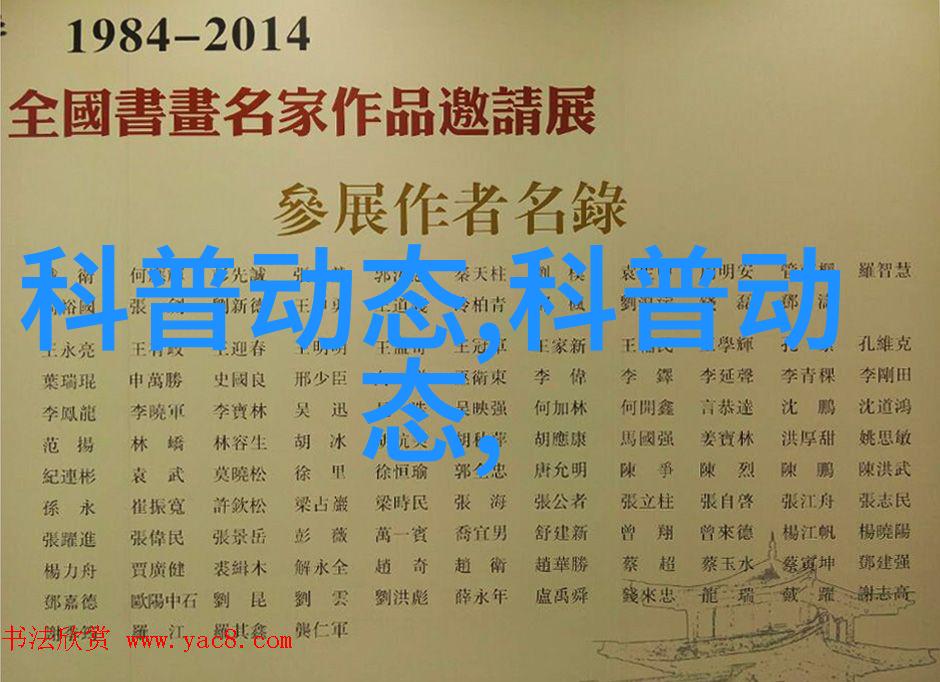 1984-2014
全國書畫名家作品邀請展
參展作者名錄
衛 何 先誠 張 郭 秦天柱 劉 袁 明安 管 羅智慧
裕國 張 劉新德 王 王道 柏青 楓 劉 磊 鄧
科普动态,科普动
态,
王永亮 王有政 王迎春 王明明 王盂奇 王冠軍 王家新 王 民 王學輝 孔 孔維克
葉瑞琨 申萬勝 史國良 邢少臣 巫衛東 李偉 李鐸 李延聲 李青稞 李剛田
李鳳龍 李曉軍 李寶林 吳迅 吳映强 何加林 何開鑫 言恭達 沈鵬 沈道鴻
范揚 林嶠 林容生 胡冰 胡應康 馬國强 姜寶林 洪厚甜 姚思敏
紀連彬 袁武 莫曉松 徐里 徐恒瑜 郭 忠 唐允明 陳爭 陳烈 陳鵬 陳洪武
孫永 崔振寬 許欽松 梁占巖 梁時民 張海 張公者 張立柱 張自啓 張江舟 張志民
張躍進 張偉民 張景岳 彭薇 萬一賓 喬宜男 舒建新 曾翔 曾來德 楊江帆 楊曉陽
楊力舟 賈廣健 裘緝木 解永全 趙奇 趙衛 趙華勝 蔡超 蔡玉水 蔡寅坤 鄧建强
鄧嘉德 歐陽中石 劉昆 劉雲 劉洪彪 薛永年 盧禹舜 錢來忠 龍瑞 戴躍 謝志高
羅江 羅其鑫 龔仁軍
书法欣赏 www.yac8.com